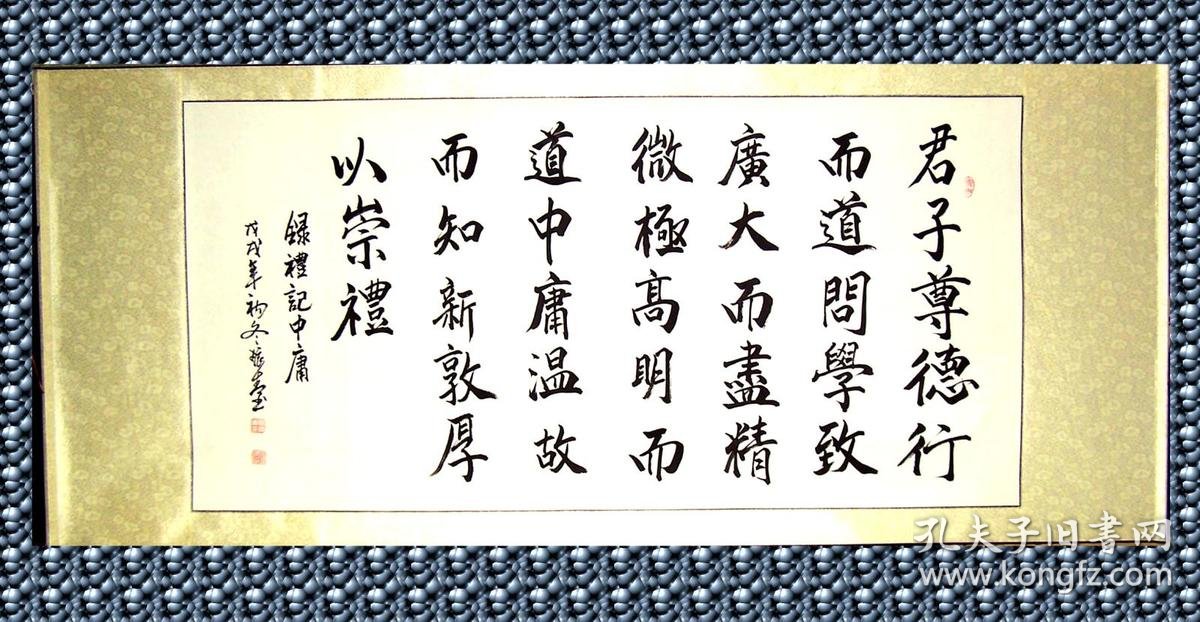 君子尊德行
而道問學致
廣大而盡精
微極高明而
道中庸温故
而知新敦厚
以崇禮
録禮記中庸
戊戌年初冬
孔夫子旧书网
www.kongfz.com